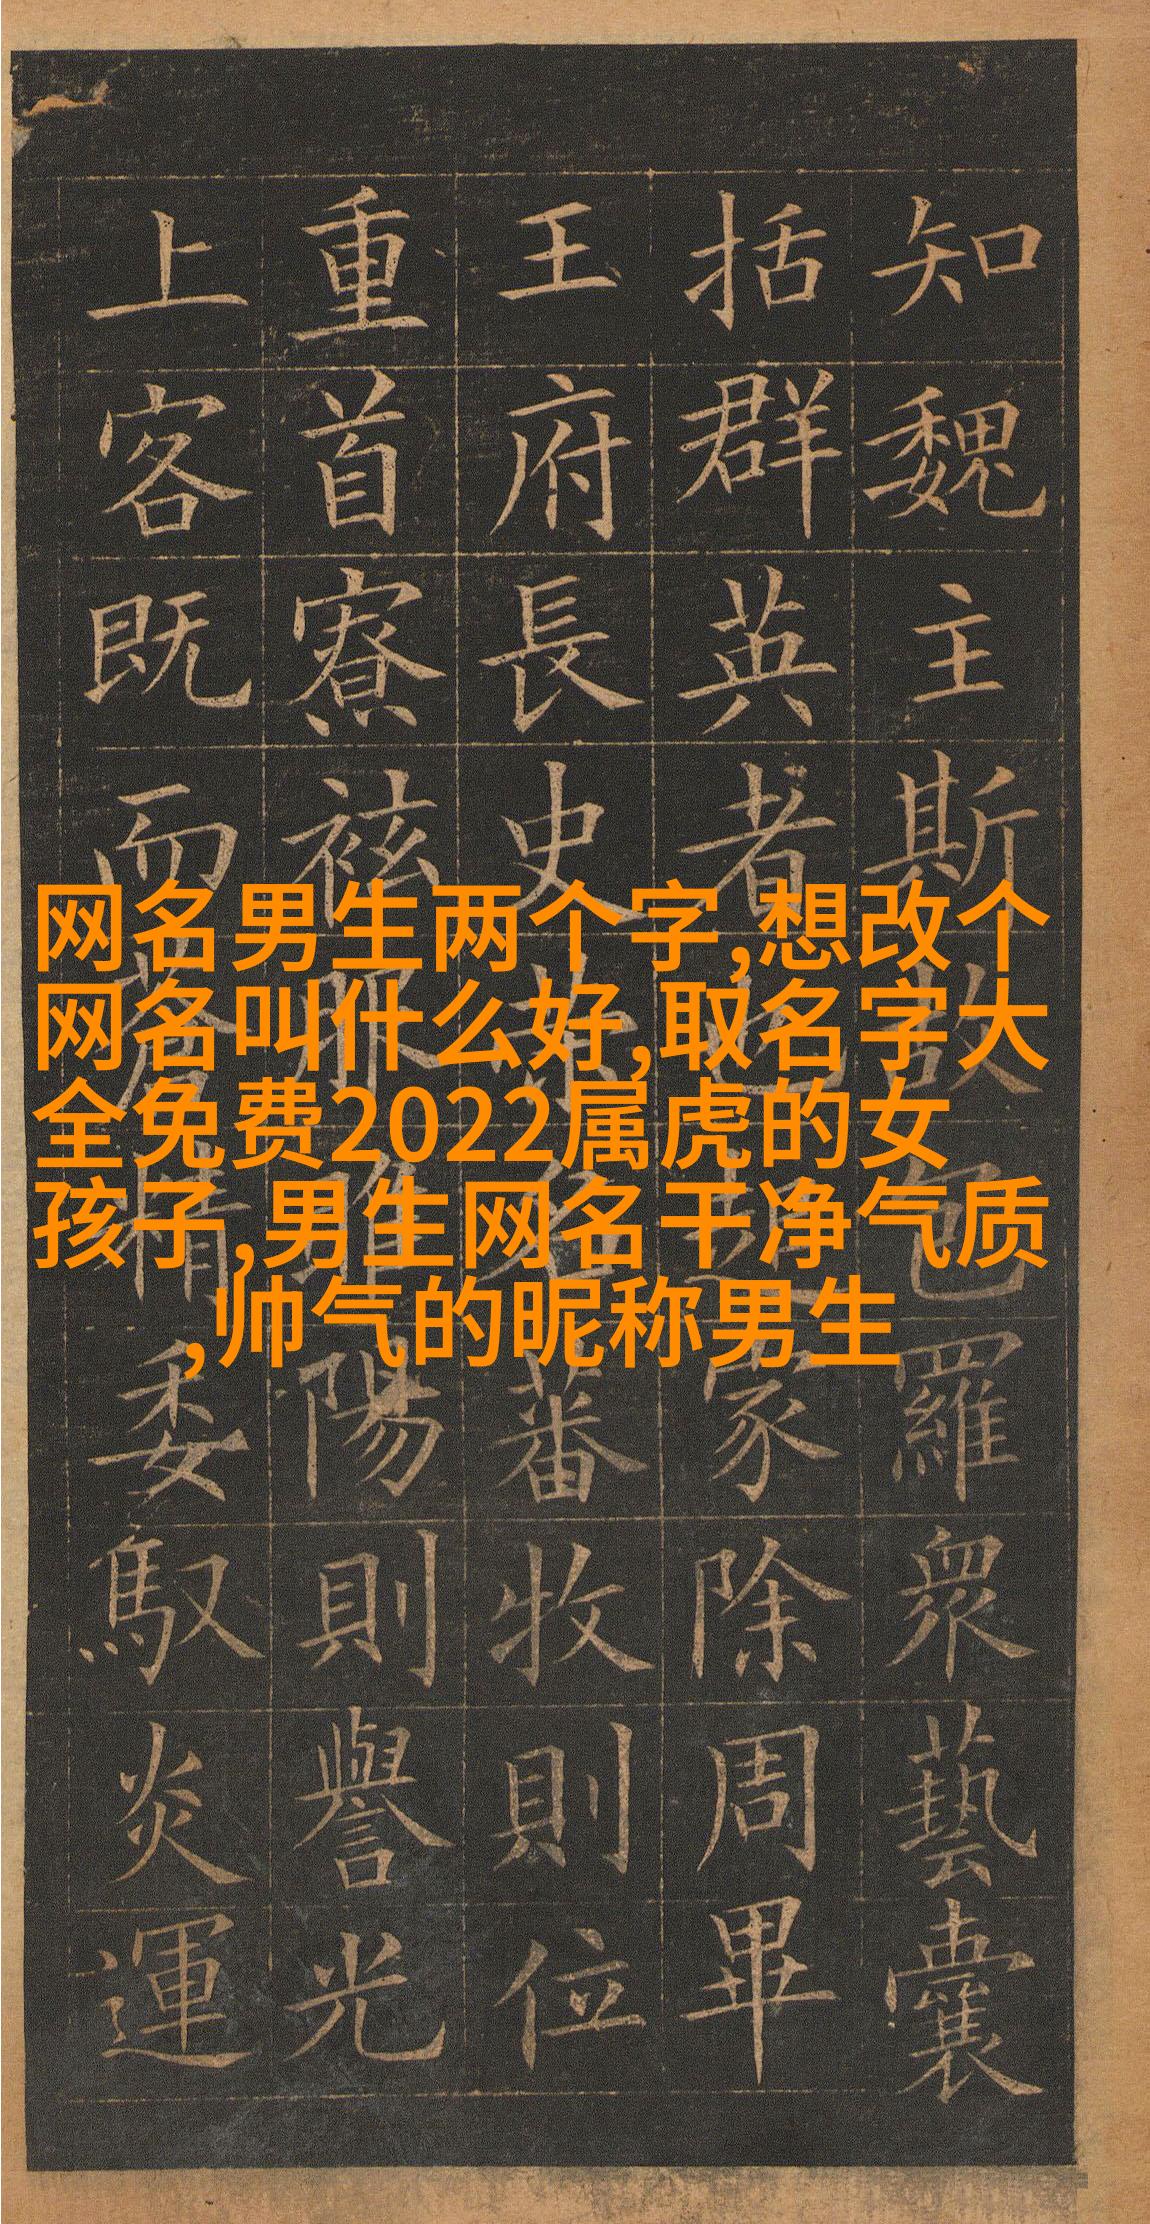 知魏主斯故包羅衆藝囊
括群英者也起家除周畢
王府長史榮名蕃牧則位
重首寮袨服睢陽則譽光
上客既而蒼精委馭炎運
网名男生两个字,想改个
网名叫什么好,取名字大
全免费2022属虎的女
孩子,男生网名干净气质
,帅气的昵称男生